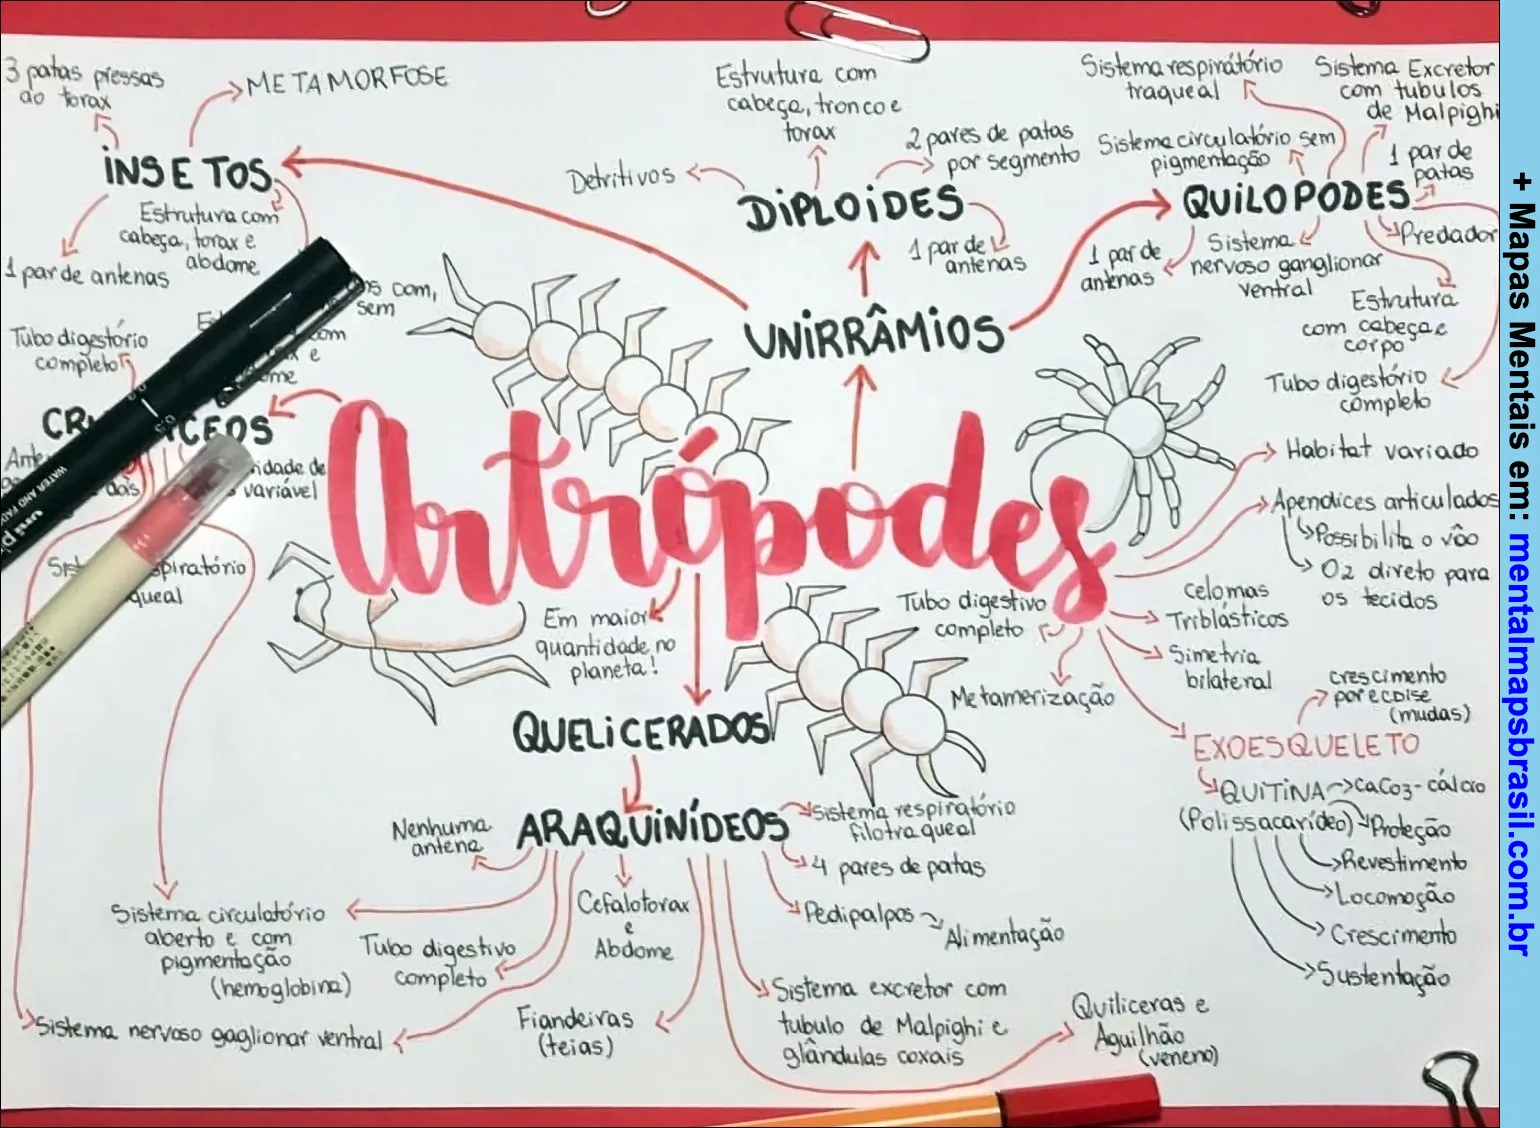 3 patas pressas
ao torax
METAMORFOSE
INSETOS
Estrutura com
cabeça, torax e
abdome
1 par de antenas
Tubo digestório
completo
Estrutura com
cabeça, tronco e
torax
2 pares de patas
por segmento
Detritivos
DIPLOIDES
1 par de
antenas
Sistema respiratório
traqueal
Sistema Excretor
com tubulos
de Malpighi
Sistema circulatório sem
pigmentação
1 par de
patas
QUILOPODES
1 par de
antenas
Sistema
nervoso ganglionar
ventral
Predador
Estrutura
com cabeça e
corpo
Tubo digestório
completo
UNIRRÂMIOS
com,
sem
com
e
Artrópodes
idade de
variável
Habitat variado
Apendices articulados
Possibilita o vôo
O2 direto para
os tecidos
celomas
Triblásticos
Simetria
bilateral
Tubo digestivo
completo
Metamerização
Em maior
quantidade no
planeta!
crescimento
por ecdise
(mudas)
EXOESQUELETO
QUITINA
CaCO3-cálcio
(Polissacarídeo)
Proteção
Revestimento
Locomoção
Crescimento
Sustentação
QUELICERADOS
ARAQUINÍDEOS
Nenhuma
antena
Sistema respiratório
filotraqueal
4 pares de patas
Pedipalpos
Alimentação
Cefalotorax
e
Abdome
Sistema circulatório
aberto e com
pigmentação
(hemoglobina)
Tubo digestivo
completo
Sistema nervoso gaglionar ventral
Fiandeiras
(teias)
Sistema excretor com
tubulo de Malpighi e
glândulas coxais
Quiliceras e
Aguilhão
(veneno)
+ Mapas Mentais em: mentalmapsbrasil.com.br